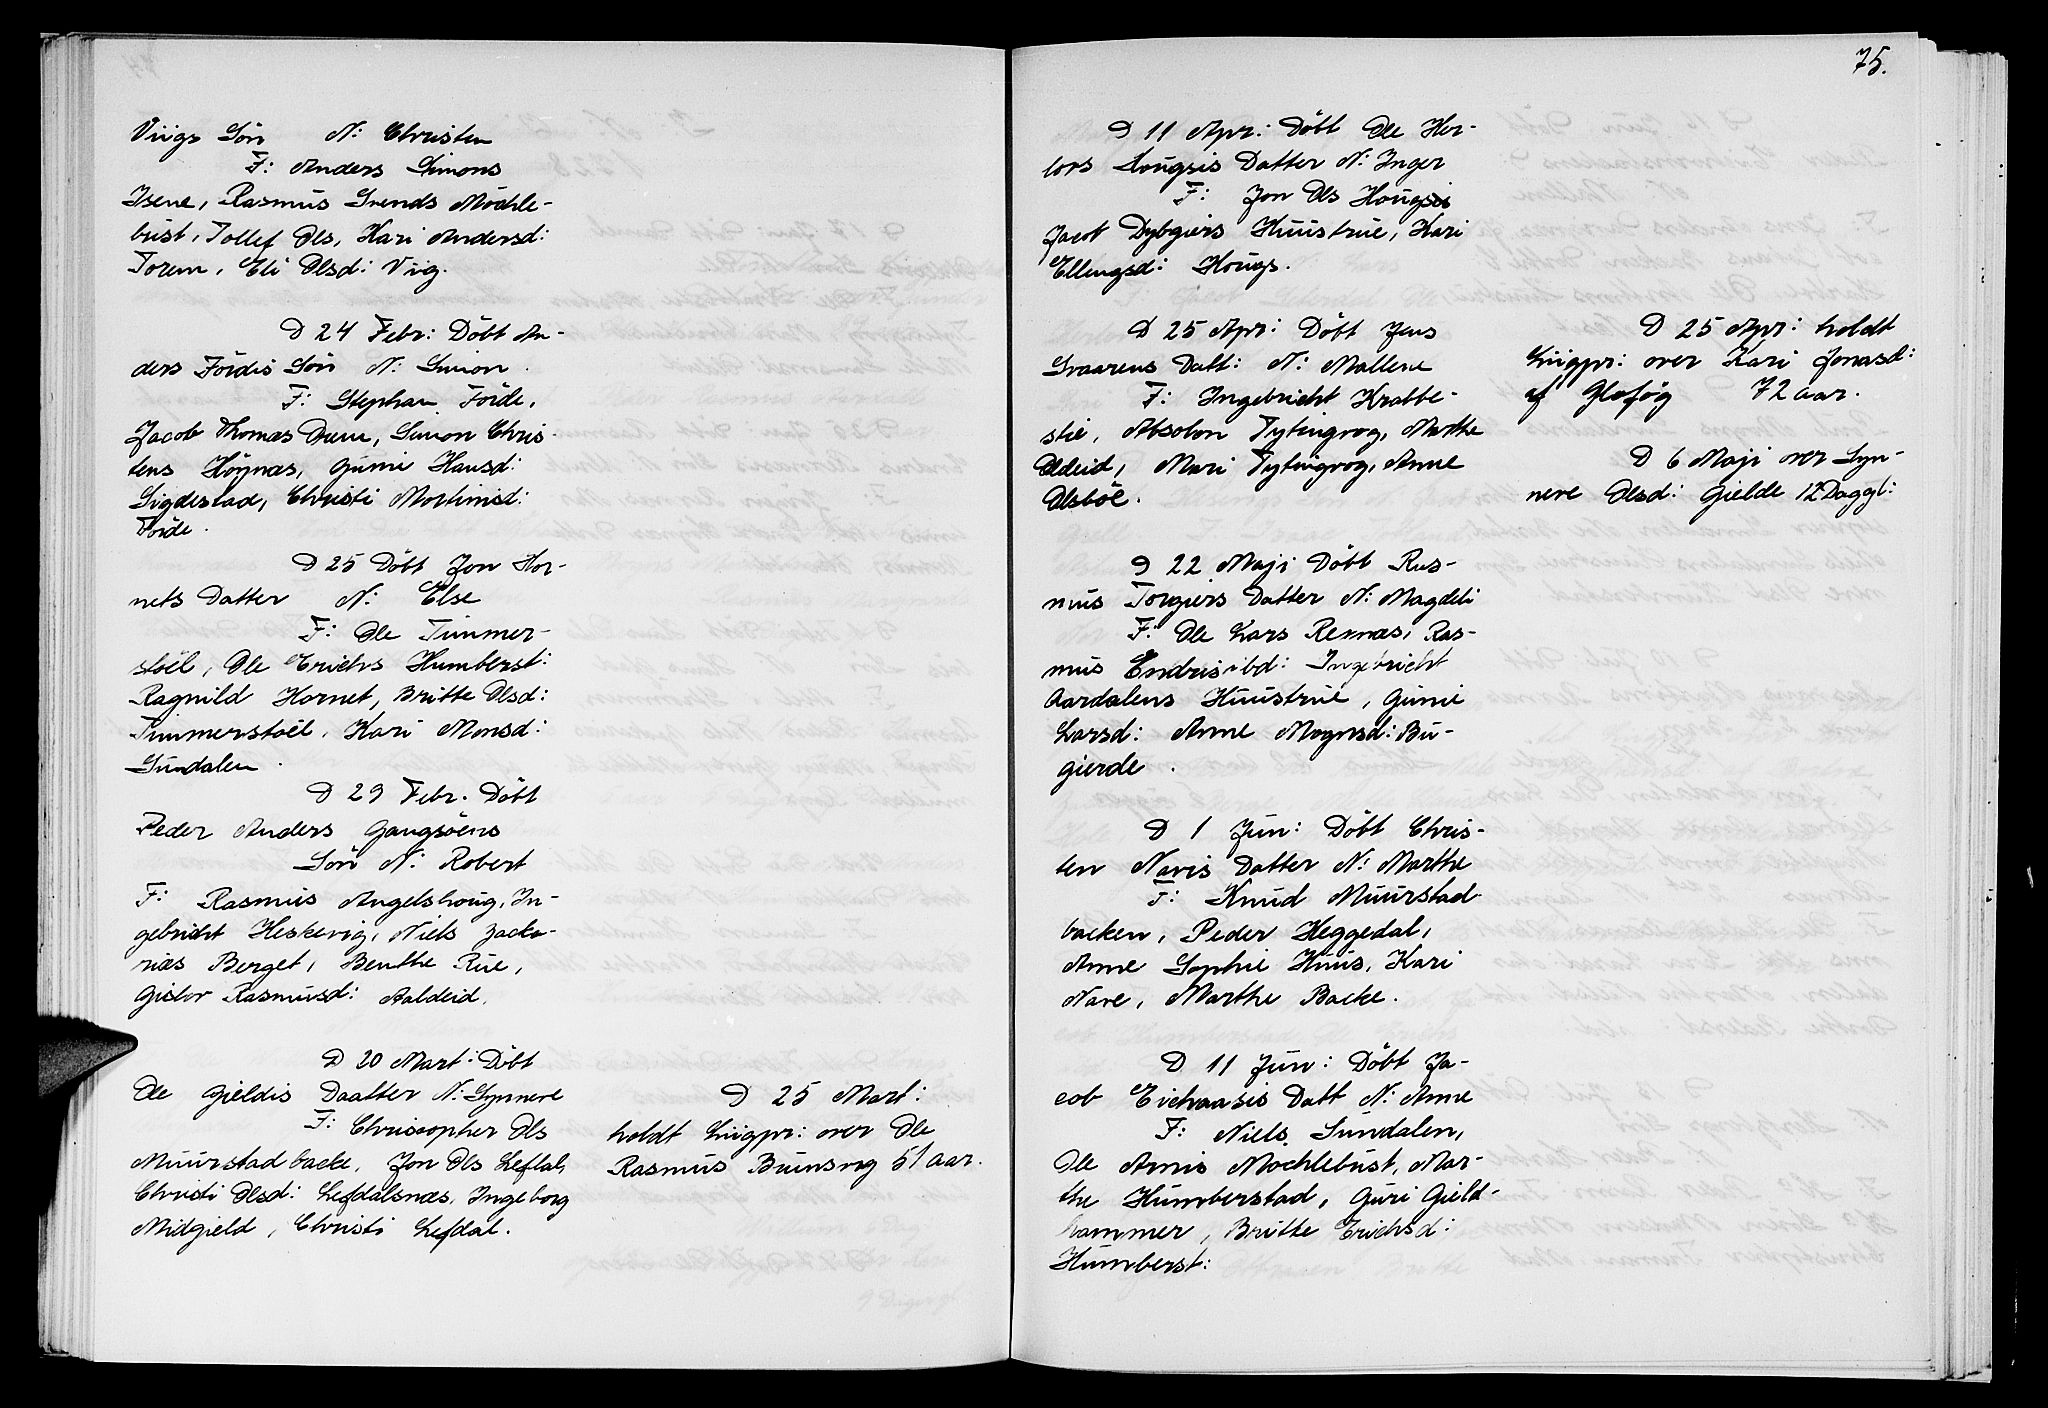 Viigs Sön N: Christen
F: Anders Simons
Isene, Rasmus Svends Möchle-
bust, Tollef Ols, Kari Andersd:
Torem, Eli Olsd: Viig.
D 24 Febr: Döbt An-
ders Fördis Sön N: Simon.
F: Stephan Förde,
Jacob Thomæs Duen, Simon Chris-
tens Höynæs, Guni Hansd:
Sigdestad, Christi Mortinsd:
Förde.
D 25 Döbt Jon Hor-
nets Datter N: Else
F: Ole Timmer-
stöel, Ole Erichs Humberst:
Ragnild Hornet, Britte Olsd:
Timmerstöel, Kari Monsd:
Sundalen.
D 29 Febr. Döbt
Peder Anders Gangsöens
Sön N: Robert
F: Rasmus Angelshoug, In-
gebricht Heskevig, Niels Zacka-
riæs Berget, Benthe Rue,
Gislov Rasmusd: Aaldeid.
D 20 Mart: Döbt
Ole Gieldis Daatter N: Synnere
F: Christopher Ols
Muurstad backe, Jon Ols Lefdal,
Christi Olsd: Lefdalsnæs, Ingeborg
Midgield, Christi Lefdal.
D 25 Mart:
holdt Liigpr: over Ole
Rasmus Buunsvig 51 aar.
75.
D 11 Apr: Döbt Ole Her-
lovs Hougsis Datter N: Inger
F: Jon Ols Hougsis
Jacob Dybgiers Huustrue, Kari
Ellingsd: Hougs.
D 25 Apr: Döbt Jens
Svaarens Datt: N: Mallene
F: Ingebricht Krabbe-
stie, Absolon Tytingvog, Marthe
Oldeid, Mari Tytingvog, Anne
Olsböe.
D 22 Maji Döbt Ras-
mus Torgiers Datter N: Magdeli
F: Ole Lars Rennæs, Ras-
mus Endris ibd: Ingebricht
Aardalens Huustrue, Gunie
Larsd: Anne Mognsd: Bu-
gierde.
D 1 Jun: Döbt Chris-
ten Navis Datter N: Marthe
F: Knud Muurstad
backen, Peder Heggedal,
Anne Sophie Huus, Kari
Nave, Marthe Backe.
D 11 Jun: Döbt Ja-
cob Eichaasis Datt N: Anne
F: Niels Sundalen,
Ole Arnis Mochlebust, Mar-
the Humberstad, Guri Gield-
hammer, Britte Erichsd:
Humberst:
D 25 Apr: holdt
Liigpr: over Kari Jonasd:
af Glofög 72 aar.
D 6 Maji over Syn-
nere Olsd: Gielde 12 Dag gl: